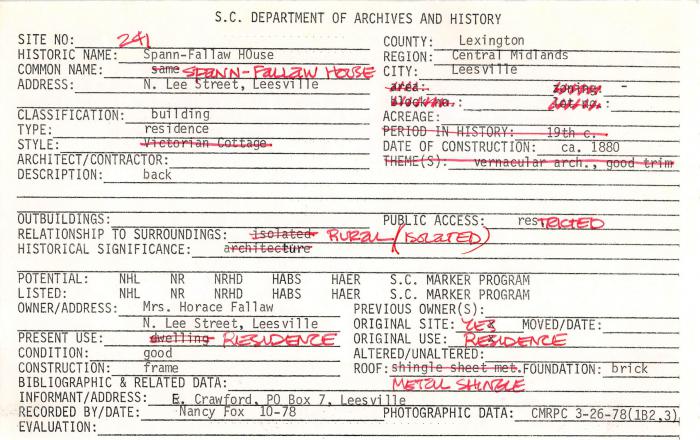 S.C. DEPARTMENT OF ARCHIVES AND HISTORY
SITE NO: 241 COUNTY: Lexington
HISTORIC NAME: Spann-Fallaw HOuse REGION: Central Midlands
COMMON NAME: same SPANN-FALLAW HOUSE CITY: Leesville
ADDRESS: N. Lee Street, Leesville area: zoning: -
block no.: lot no.:
CLASSIFICATION: building ACREAGE:
TYPE: residence PERIOD IN HISTORY: 19th c.
STYLE: Victorian Cottage. DATE OF CONSTRUCTION: ca. 1880
ARCHITECT/CONTRACTOR: THEME(S): vernacular arch., good trim
DESCRIPTION: back
OUTBUILDINGS: PUBLIC ACCESS: resTRICTED
RELATIONSHIP TO SURROUNDINGS: isolated RURAL (ISOLATED)
HISTORICAL SIGNIFICANCE: architecture
POTENTIAL: NHL NR NRHD HABS HAER S.C. MARKER PROGRAM
LISTED: NHL NR NRHD HABS HAER S.C. MARKER PROGRAM
OWNER/ADDRESS: Mrs. Horace Fallaw PREVIOUS OWNER(S):
N. Lee Street, Leesville ORIGINAL SITE: YES MOVED/DATE:
PRESENT USE: dwelling RESIDENCE ORIGINAL USE: RESIDENCE
CONDITION: good ALTERED/UNALTERED:
CONSTRUCTION: frame ROOF: shingle sheet met. FOUNDATION: brick
BIBLIOGRAPHIC & RELATED DATA: METAL SHINGLE
INFORMANT/ADDRESS: E. Crawford, PO Box 7, Leesville
RECORDED BY/DATE: Nancy Fox 10-78 PHOTOGRAPHIC DATA: CMRPC 3-26-78(1B2,3)
EVALUATION: